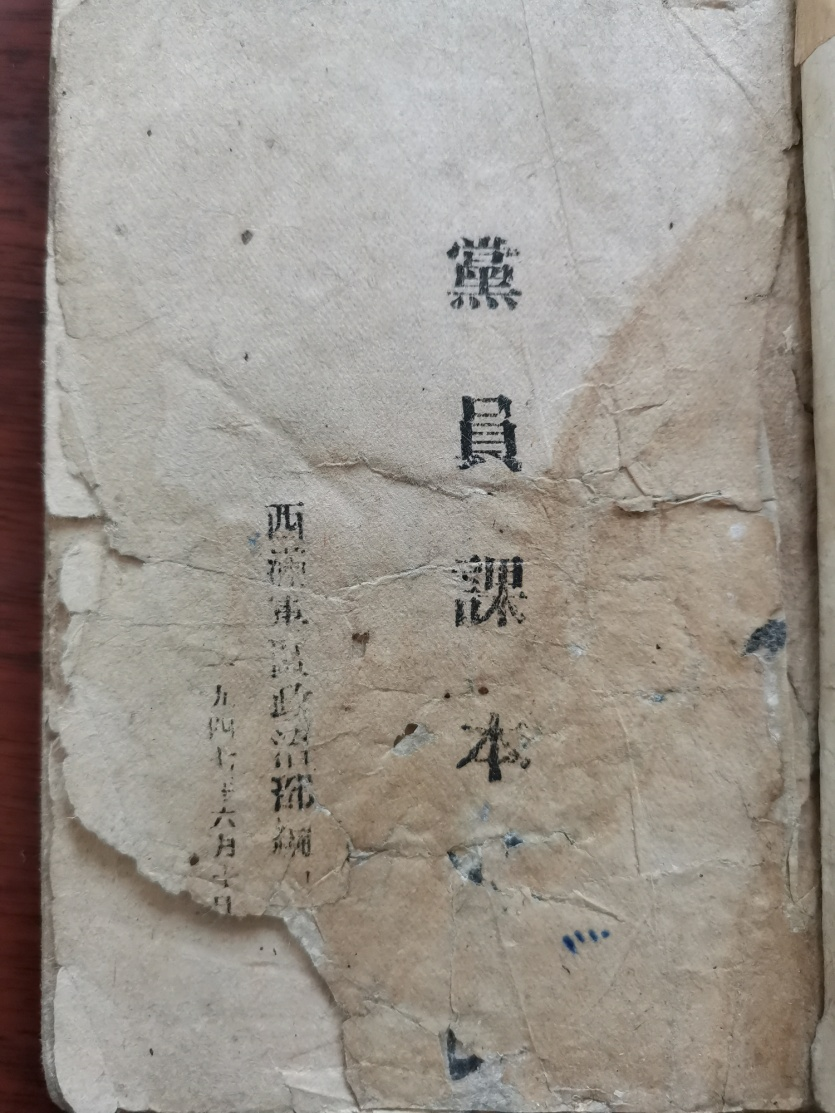 黨員課本
西滿軍區政治部編
九四七年六月十日